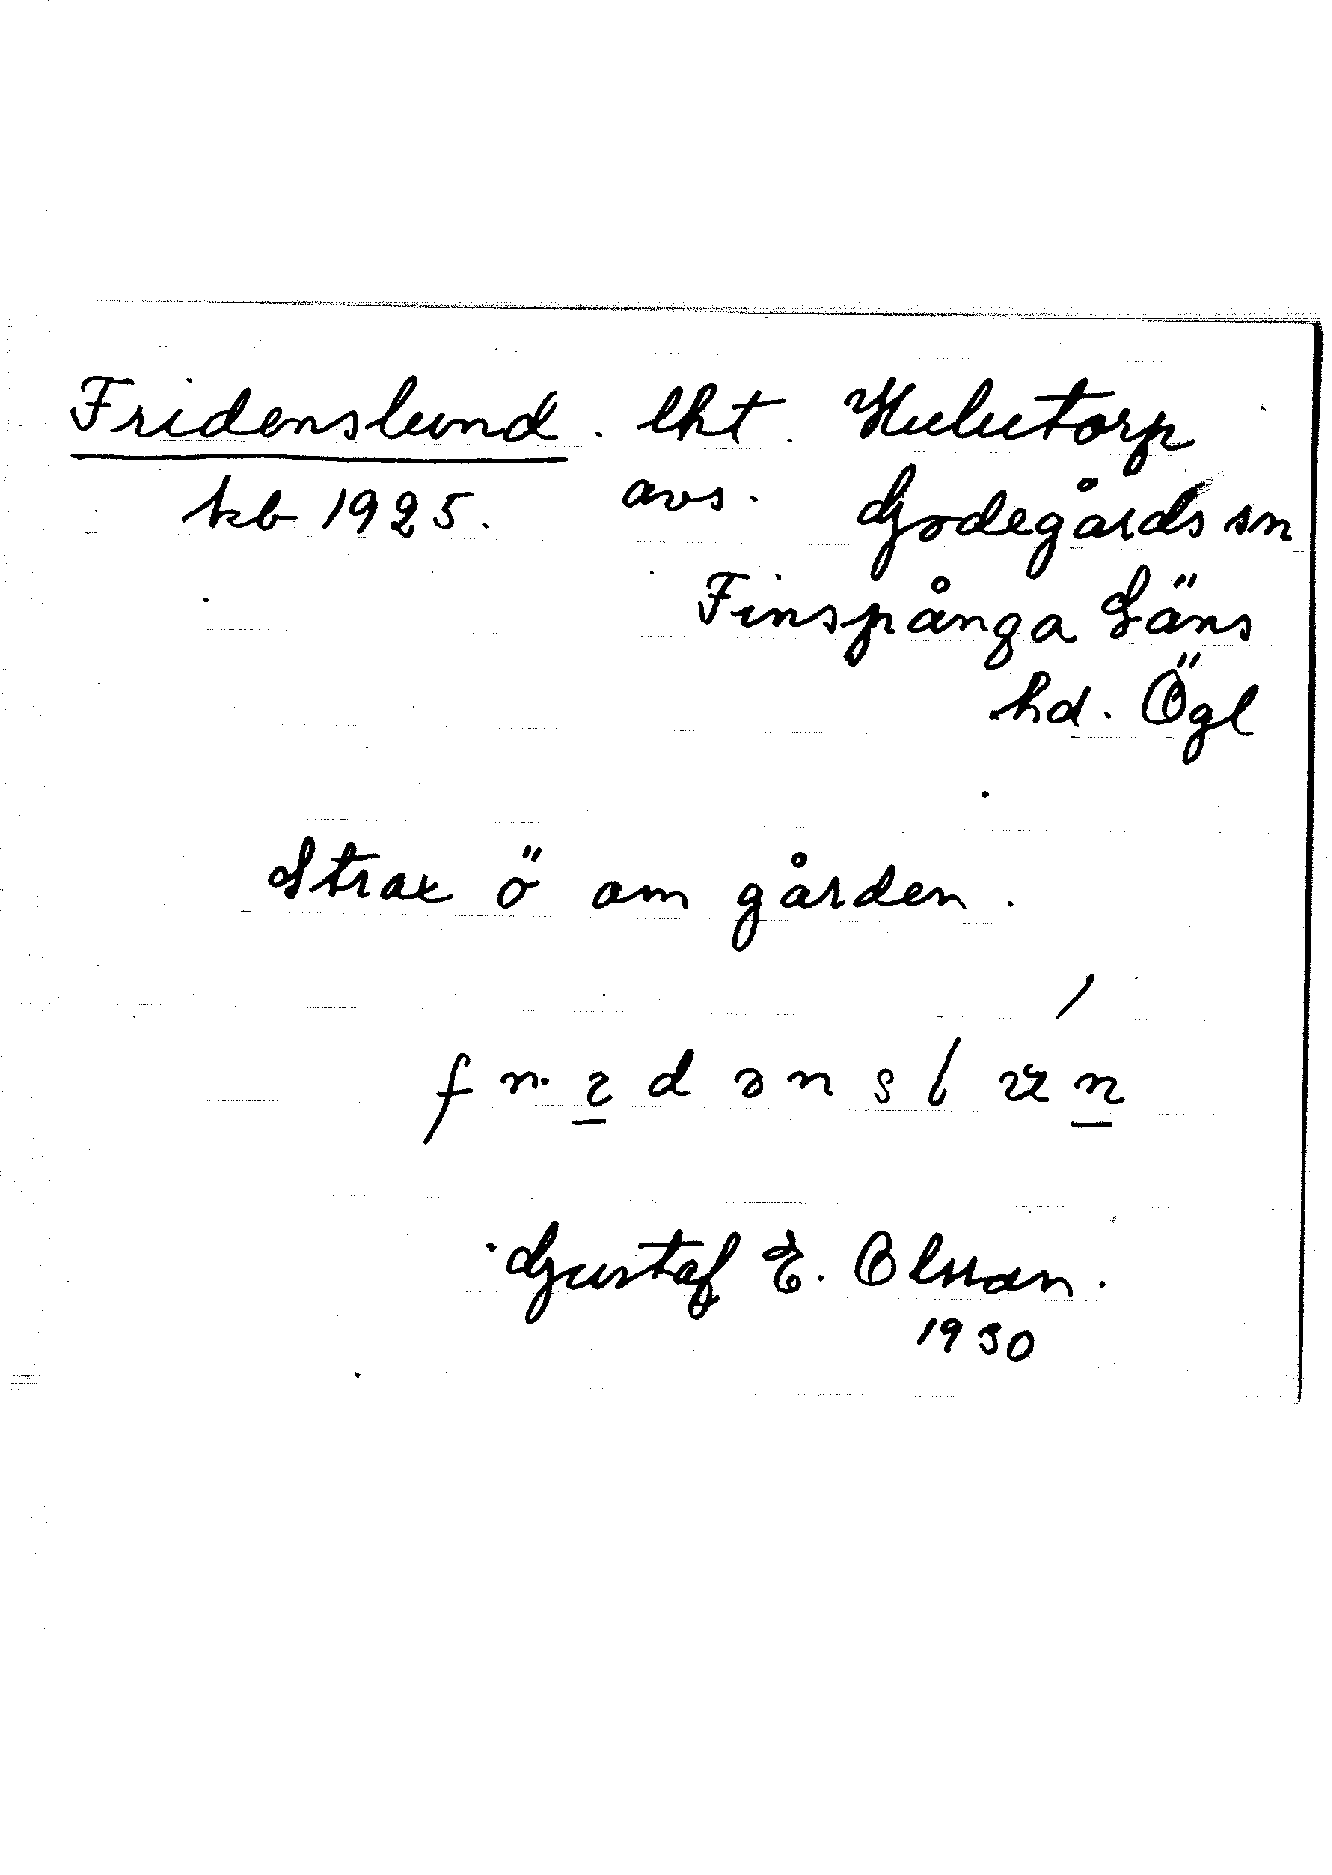 Fridenslund. lht. Hulutorp
kb 1925. avs. Godegårds sn
Finspånga Läns
hd. Ögl
Strax ö om gården.
Gustaf E. Olsson.
1930